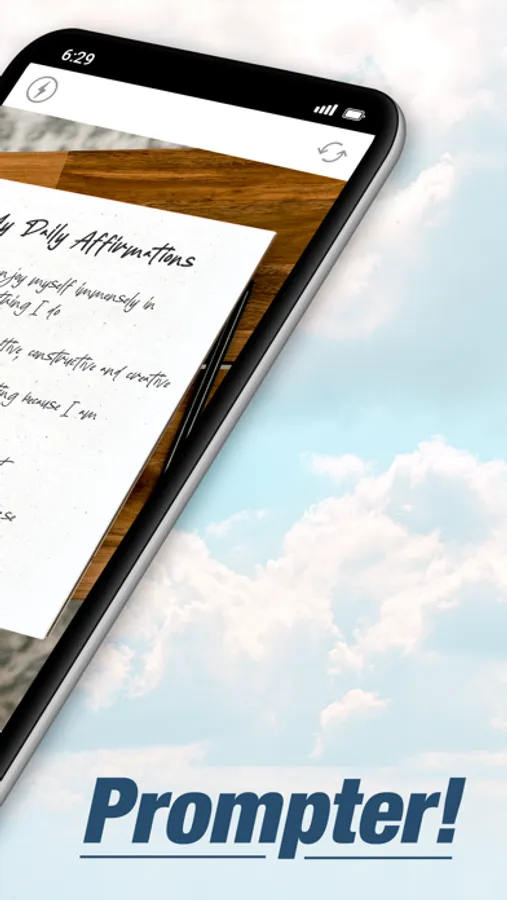 6:29
My Daily Affirmations
enjoy myself immensely in
thing I do
constructive and creative
because I am
Prompter!